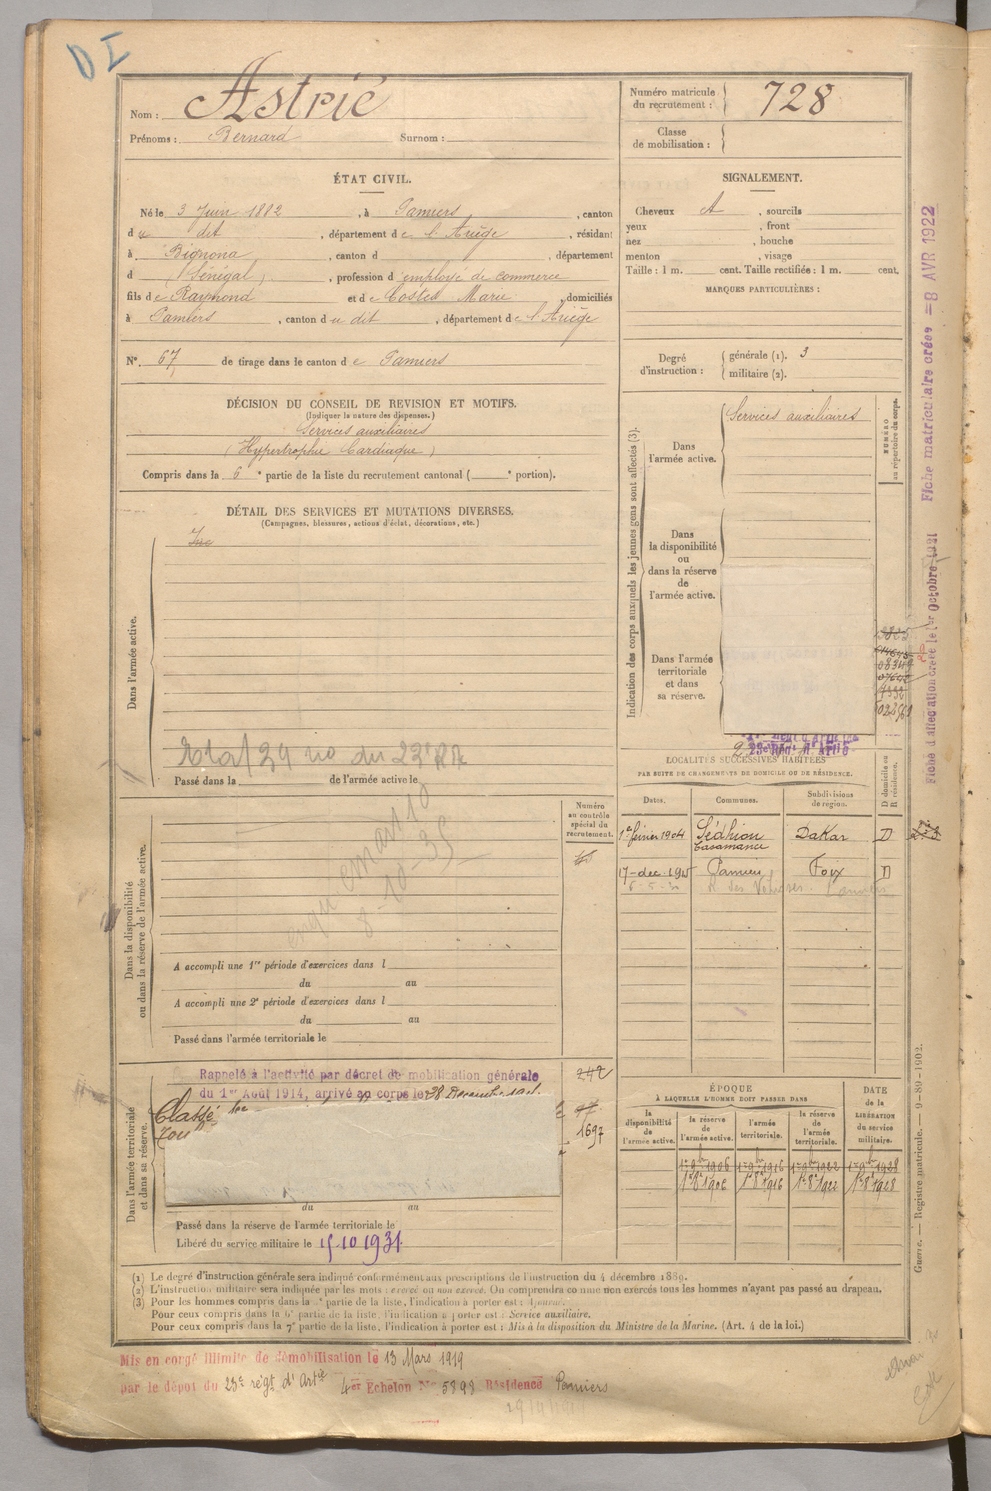 D I
Nom : Astrié
Prénoms : Bernard Surnom :
Numéro matricule du recrutement : 728
Classe de mobilisation :
ÉTAT CIVIL.
Né le 3 Juin 1882, à Pamiers, canton
du dit, département de l'Ariège, résidant
à Bignona, canton d , département
d (Sénégal), profession d'employé de commerce
fils de Raymond et de Costes Marie domiciliés
à Pamiers, canton du dit, département de l'Ariège
N° 67 de tirage dans le canton de Pamiers
SIGNALEMENT.
Cheveux , sourcils
yeux , front
nez , bouche
menton , visage
Taille : 1 m. cent. Taille rectifiée : 1 m. cent.
MARQUES PARTICULIÈRES :
Degré d'instruction : générale (1). 3
militaire (2).
DÉCISION DU CONSEIL DE REVISION ET MOTIFS.
(Indiquer la nature des dispenses.)
Services auxiliaires
(Hypertrophie Cardiaque)
Compris dans la 6e partie de la liste du recrutement cantonal ( e portion).
DÉTAIL DES SERVICES ET MUTATIONS DIVERSES.
(Campagnes, blessures, actions d'éclat, décorations, etc.)
Dans l'armée active.
du 23e RA
Passé dans la de l'armée active le
Indication des corps auxquels les jeunes gens sont affectés (3).
Dans l'armée active.
Services auxiliaires
NUMÉRO au répertoire du corps.
Dans la disponibilité ou dans la réserve de l'armée active.
Dans l'armée territoriale et dans sa réserve.
Fiche matriculaire créée =8 AVR 1922
Fiche d'affectation créée le 1er Octobre 1921
LOCALITÉS SUCCESSIVES HABITÉES
PAR SUITE DE CHANGEMENTS DE DOMICILE OU DE RÉSIDENCE.
Dates. Communes. Subdivisions de région. D domicile ou R résidence.
1er février 1904 Sédhiou Casamance Dakar D
17-dec.1915 Pamiers Foix D
Dans la disponibilité ou dans la réserve de l'armée active.
Numéro au contrôle spécial du recrutement.
8-10-35
A accompli une 1re période d'exercices dans l
du au
A accompli une 2e période d'exercices dans l
du au
Passé dans l'armée territoriale le
Dans l'armée territoriale et dans sa réserve.
Rappelé à l'activité par décret de mobilisation générale
du 1er Août 1914, arrivé au corps le
Classé
242
1697
du au
Passé dans la réserve de l'armée territoriale le
Libéré du service militaire le 15 10 1931
ÉPOQUE
À LAQUELLE L'HOMME DOIT PASSER DANS
la disponibilité de l'armée active. la réserve de l'armée active. l'armée territoriale. la réserve de l'armée territoriale. DATE de la LIBÉRATION du service militaire.
1er 9bre 1906 1er 9bre 1916 1er 9bre 1922 1er 9bre 1928
1er 8bre 1906 1er 8bre 1916 1er 8bre 1922 1er 8bre 1928
Guerre. — Registre matricule. — 9-89-1902.
(1) Le degré d'instruction générale sera indiqué conformément aux prescriptions de l'instruction du 4 décembre 1889.
(2) L'instruction militaire sera indiquée par les mots : exercé ou non exercé. On comprendra comme non exercés tous les hommes n'ayant pas passé au drapeau.
(3) Pour les hommes compris dans la e partie de la liste, l'indication à porter est : Ajourné.
Pour ceux compris dans la 6e partie de la liste, l'indication à porter est : Service auxiliaire.
Pour ceux compris dans la 7e partie de la liste, l'indication à porter est : Mis à la disposition du Ministre de la Marine. (Art. 4 de la loi.)
Mis en congé illimité de démobilisation le 13 Mars 1919
par le dépôt du 23e régt d'Artie 4er Echelon N° 5898 Résidence Pamiers